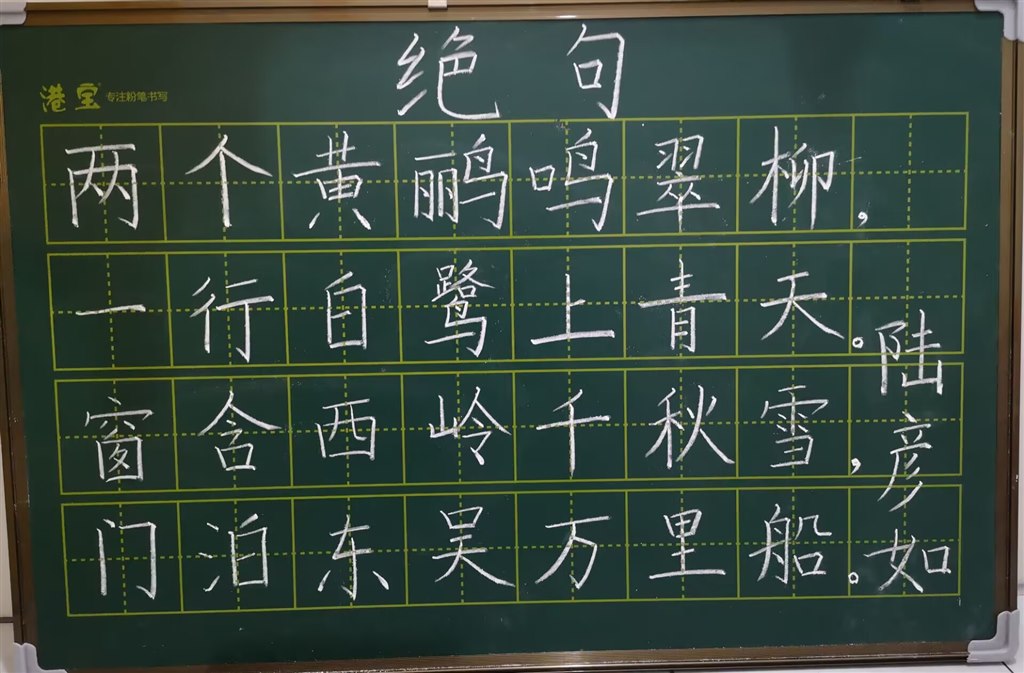 绝句
港宝 专注粉笔书写
两个黄鹂鸣翠柳,
一行白鹭上青天。
窗含西岭千秋雪,
门泊东吴万里船。
陆彦如